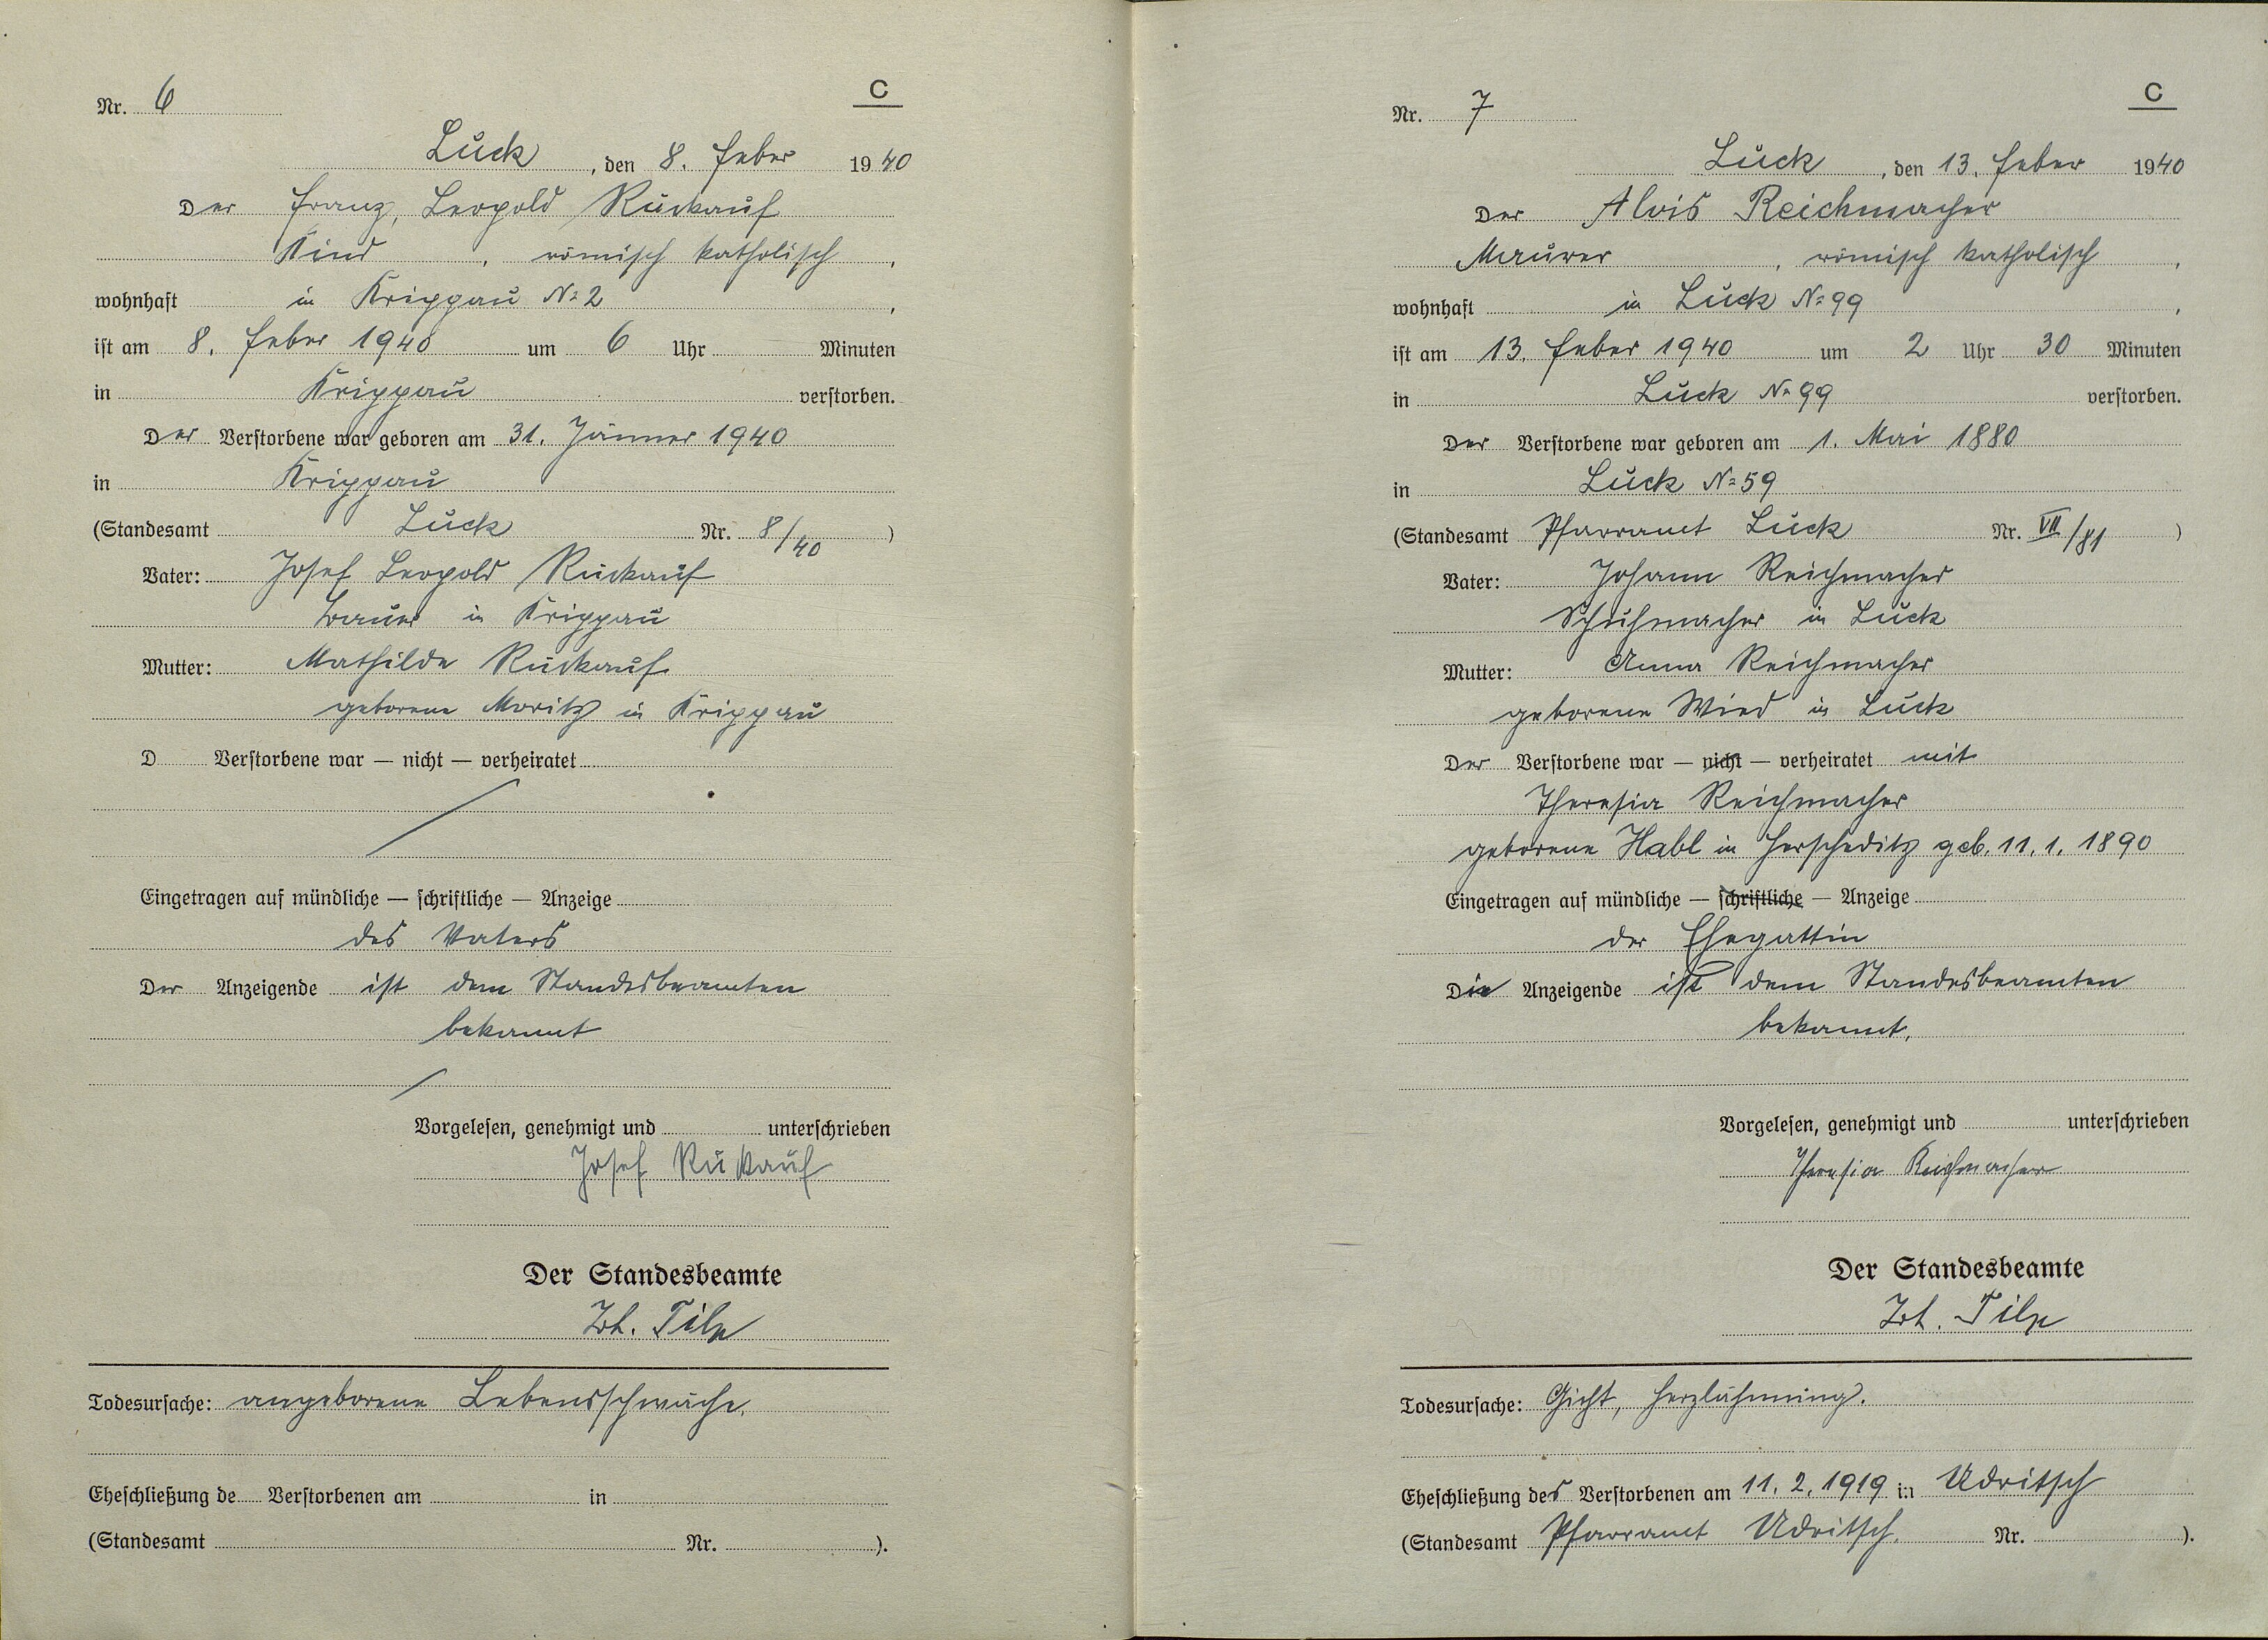 Nr. 6
C
Luck, den 8. Feber 1940
Der Franz, Leopold Rückauf
Kind, römisch katholisch,
wohnhaft in Krippau No 2,
ist am 8. Feber 1940 um 6 Uhr Minuten
in Krippau verstorben.
Der Verstorbene war geboren am 31. Jänner 1940
in Krippau
(Standesamt Luck Nr. 8/40)
Vater: Josef Leopold Rückauf
Bauer in Krippau
Mutter: Mathilde Rückauf
geborene Moritz in Krippau
D Verstorbene war — nicht — verheiratet
Eingetragen auf mündliche — schriftliche — Anzeige
des Vaters
Der Anzeigende ist dem Standesbeamten
bekannt
Vorgelesen, genehmigt und unterschrieben
Josef Rükauf
Der Standesbeamte
Joh. Tilp
Todesursache: angeborene Lebensschwäche.
Eheschließung de Verstorbenen am in
(Standesamt Nr. ).
Nr. 7
C
Luck, den 13. Feber 1940
Der Alois Reichmacher
Maurer, römisch katholisch,
wohnhaft in Luck No 99,
ist am 13. Feber 1940 um 2 Uhr 30 Minuten
in Luck No 99 verstorben.
Der Verstorbene war geboren am 1. Mai 1880
in Luck No 59
(Standesamt Pfarramt Luck Nr. VII/81)
Vater: Johann Reichmacher
Schuhmacher in Luck
Mutter: Anna Reichmacher
geborene Wied in Luck
Der Verstorbene war — nicht — verheiratet mit
Theresia Reichmacher
geborene Habl in Herscheditz geb. 11. 1. 1890
Eingetragen auf mündliche — schriftliche — Anzeige
der Ehegattin
Die Anzeigende ist dem Standesbeamten
bekannt.
Vorgelesen, genehmigt und unterschrieben
Theresia Reichmacher
Der Standesbeamte
Joh. Tilp
Todesursache: Gicht, Herzlähmung.
Eheschließung des Verstorbenen am 11. 2. 1919 in Udritsch
(Standesamt Pfarramt Udritsch. Nr. ).